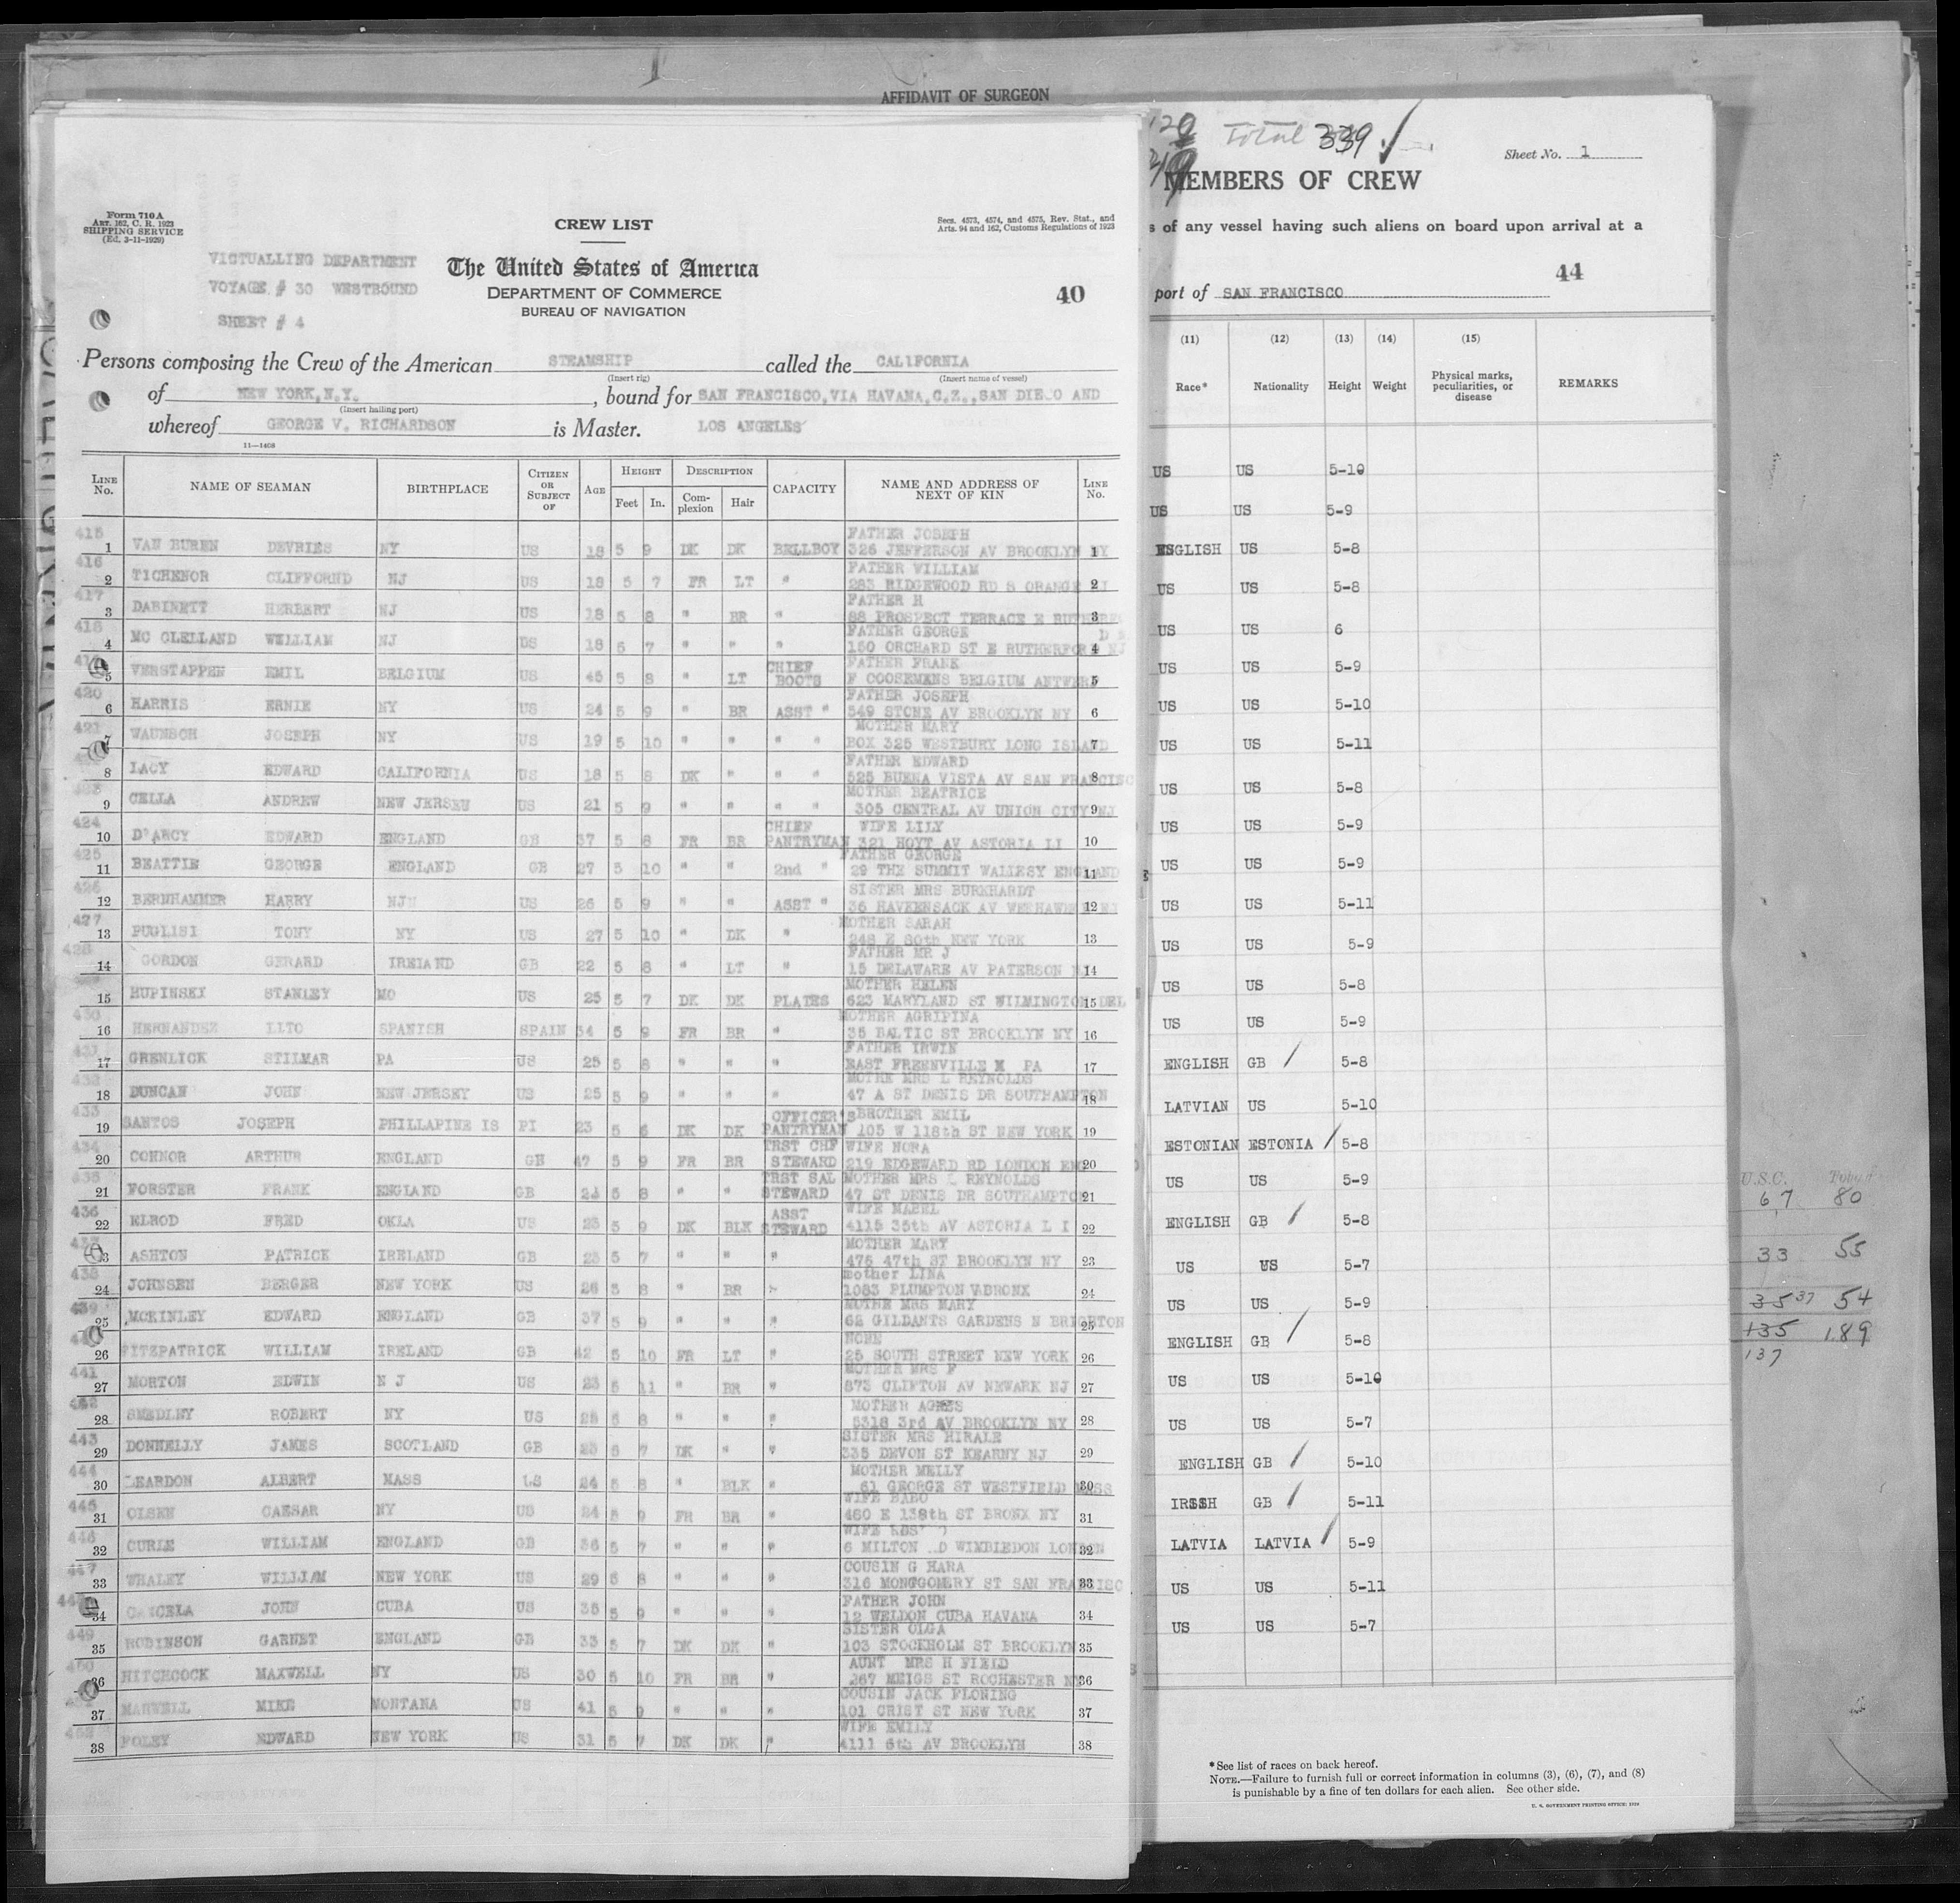 AFFIDAVIT OF SURGEON
Form 710 A
ART. 162, C. R. 1923
SHIPPING SERVICE
(Ed. 3-11-1929)
CREW LIST
Secs. 4573, 4574, and 4575, Rev. Stat., and
Arts. 94 and 162, Customs Regulations of 1923
VICTUALLING DEPARTMENT
VOYAGE # 30 WESTBOUND
SHEET # 4
The United States of America
DEPARTMENT OF COMMERCE
BUREAU OF NAVIGATION
40
Persons composing the Crew of the American STEAMSHIP called the CALIFORNIA
(Insert rig) (Insert name of vessel)
of NEW YORK, N.Y. , bound for SAN FRANCISCO, VIA HAVANA, C.Z., SAN DIEGO AND
(Insert hailing port)
whereof GEORGE V. RICHARDSON is Master. LOS ANGELES
11—1408
LINE No. NAME OF SEAMAN BIRTHPLACE CITIZEN OR SUBJECT OF AGE HEIGHT Feet In. DESCRIPTION Complexion Hair CAPACITY NAME AND ADDRESS OF NEXT OF KIN LINE No.
415 FATHER JOSEPH
1 VAN BUREN DEVRIES NY US 18 5 9 DK DK BELLBOY 326 JEFFERSON AV BROOKLYN NY 1
416 FATHER WILLIAM
2 TICHENOR CLIFFORND NJ US 18 5 7 FR LT " 283 RIDGEWOOD RD S ORANGE 2
417 FATHER H
3 DABINETT HERBERT NJ US 18 5 8 " BR " 88 PROSPECT TERRACE E 3
418 FATHER GEORGE
4 MC CLELLAND WILLIAM NJ US 18 5 7 " " " 150 ORCHARD ST E RUTHERFORD NJ 4
CHIEF FATHER FRANK
5 VERSTAPPEN EMIL BELGIUM US 45 5 8 " LT BOOTS F COOSEMANS BELGIUM ANTWERP 5
420 FATHER JOSEPH
6 HARRIS ERNIE NY US 24 5 9 " BR ASST " 549 STONE AV BROOKLYN NY 6
421 MOTHER MARY
7 WAUNSCH JOSEPH NY US 19 5 10 " " " " BOX 325 WESTBURY LONG ISLAND 7
FATHER EDWARD
8 LACY EDWARD CALIFORNIA US 18 5 8 DK " " " 525 BUENA VISTA AV SAN FRANCISC 8
423 MOTHER BEATRICE
9 CELLA ANDREW NEW JERSEU US 21 5 9 " " " " 305 CENTRAL AV UNION CITY NJ 9
424 CHIEF WIFE LILY
10 D'ARCY EDWARD ENGLAND GB 37 5 8 FR BR PANTRYMAN 321 HOYT AV ASTORIA LI 10
425 FATHER GEORGE
11 BEATTIE GEORGE ENGLAND GB 27 5 10 " " 2nd " 29 THE SUMMIT WALLESY ENGLAND 11
426 SISTER MRS BURKHARDT
12 BERNHAMMER HARRY NJ US 26 5 9 " " ASST " 36 HAVKENSACK AV 12
427 MOTHER SARAH
13 PUGLISI TONY NY US 27 5 10 " DK " 248 E 80th NEW YORK 13
428 FATHER MR J
14 GORDON GERARD IRELAND GB 22 5 8 " LT " 15 DELAWARE AV PATERSON 14
MOTHER HELEN
15 RUPINSKI STANLEY MO US 25 5 7 DK DK PLATES 623 MARYLAND ST WILMINGTON DEL 15
430 MOTHER AGRIPINA
16 HERNANDEZ LITO SPANISH SPAIN 34 5 9 FR BR " 35 BALTIC ST BROOKLYN NY 16
431 FATHER IRWIN
17 GRENLICK STILMAR PA US 25 5 8 " " " EAST FREENVILLE PA 17
432 MOTHE MRS L REYNOLDS
18 DUNCAN JOHN NEW JERSEY US 25 5 9 " " " 47 A ST DENIS DR SOUTHAMPTON 18
433 OFFICER'S BROTHER EMIL
19 SANTOS JOSEPH PHILLAPINE IS PI 23 5 6 DK DK PANTRYMAN 105 W 118th ST NEW YORK 19
434 TRST CHF WIFE NORA
20 CONNOR ARTHUR ENGLAND GB 47 5 9 FR BR STEWARD 219 EDGEWARD RD LONDON ENG 20
435 TRST SAL MOTHER MRS L REYNOLDS
21 FORSTER FRANK ENGLAND GB 24 5 8 " " STEWARD 47 ST DENIS DR SOUTHAMPTO 21
436 ASST WIFE MABEL
22 ELROD FRED OKLA US 23 5 9 DK BLK STEWARD 4115 35th AV ASTORIA L I 22
437 MOTHER MARY
23 ASHTON PATRICK IRELAND GB 23 5 7 " " " 475 47th ST BROOKLYN NY 23
438 mother LINA
24 JOHNSEN BERGER NEW YORK US 26 5 8 " BR " 1083 PLUMPTON BRONX 24
439 MOTHE MRS MARY
25 MCKINLEY EDWARD ENGLAND GB 37 5 9 " " " 62 GILDANTS GARDENS N BRIGHTON 25
NONE
26 FITZPATRICK WILLIAM IRELAND GB 42 5 10 FR LT " 25 SOUTH STREET NEW YORK 26
441 MOTHER MRS F
27 MORTON EDWIN N J US 23 5 11 " BR " 873 CLIFTON AV NEWARK NJ 27
442 MOTHER AGNES
28 SMEDLEY ROBERT NY US 25 5 8 " " " 5318 3rd AV BROOKLYN NY 28
443 SISTER MRS HIRALE
29 DONNELLY JAMES SCOTLAND GB 23 5 7 DK " " 335 DEVON ST KEARNY NJ 29
444 MOTHER MELLY
30 LEARDON ALBERT MASS US 24 5 8 " BLK " 61 GEORGE ST WESTFIELD MASS 30
445 WIFE BABO
31 OLSEN CAESAR NY US 24 5 9 FR BR " 460 E 138th ST BRONX NY 31
446 WIFE
32 CURLE WILLIAM ENGLAND GB 36 5 7 " " " 6 MILTON WIMBLEDON LONDON 32
447 COUSIN G HARA
33 WHALEY WILLIAM NEW YORK US 29 5 8 " " " 316 MONTGOMERY ST SAN FRANCISC 33
FATHER JOHN
34 CANCELA JOHN CUBA US 35 5 9 " " " 12 WELDON CUBA HAVANA 34
449 SISTER OLGA
35 ROBINSON GARNET ENGLAND GB 33 5 7 DK DK " 103 STOCKHOLM ST BROOKLYN 35
450 AUNT MRS H FIELD
36 HITCHCOCK MAXWELL NY US 30 5 10 FR BR " 267 MEIGS ST ROCHESTER NY 36
COUSIN JACK FLONING
37 MARWELL MIKE MONTANA US 41 5 9 " " " 101 CRIST ST NEW YORK 37
452 WIFE EMILY
38 FOLEY EDWARD NEW YORK US 31 5 7 DK DK " 4111 6th AV BROOKLYN 38
Total 339
Sheet No. 1
MEMBERS OF CREW
s of any vessel having such aliens on board upon arrival at a
44
port of SAN FRANCISCO
(11) (12) (13) (14) (15)
Race* Nationality Height Weight Physical marks, peculiarities, or disease REMARKS
US US 5-10
US US 5-9
ENGLISH US 5-8
US US 5-8
US US 6
US US 5-9
US US 5-10
US US 5-11
US US 5-8
US US 5-9
US US 5-9
US US 5-11
US US 5-9
US US 5-8
US US 5-9
ENGLISH GB / 5-8
LATVIAN US 5-10
ESTONIAN ESTONIA / 5-8
US US 5-9
ENGLISH GB / 5-8
US US 5-7
US US 5-9
ENGLISH GB / 5-8
US US 5-10
US US 5-7
ENGLISH GB / 5-10
IRISH GB / 5-11
LATVIA LATVIA / 5-9
US US 5-11
US US 5-7
*See list of races on back hereof.
NOTE.—Failure to furnish full or correct information in columns (3), (6), (7), and (8)
is punishable by a fine of ten dollars for each alien. See other side.
U. S. GOVERNMENT PRINTING OFFICE: 1929
U.S.C.
67 80
33 55
35 37 54
135 189
137